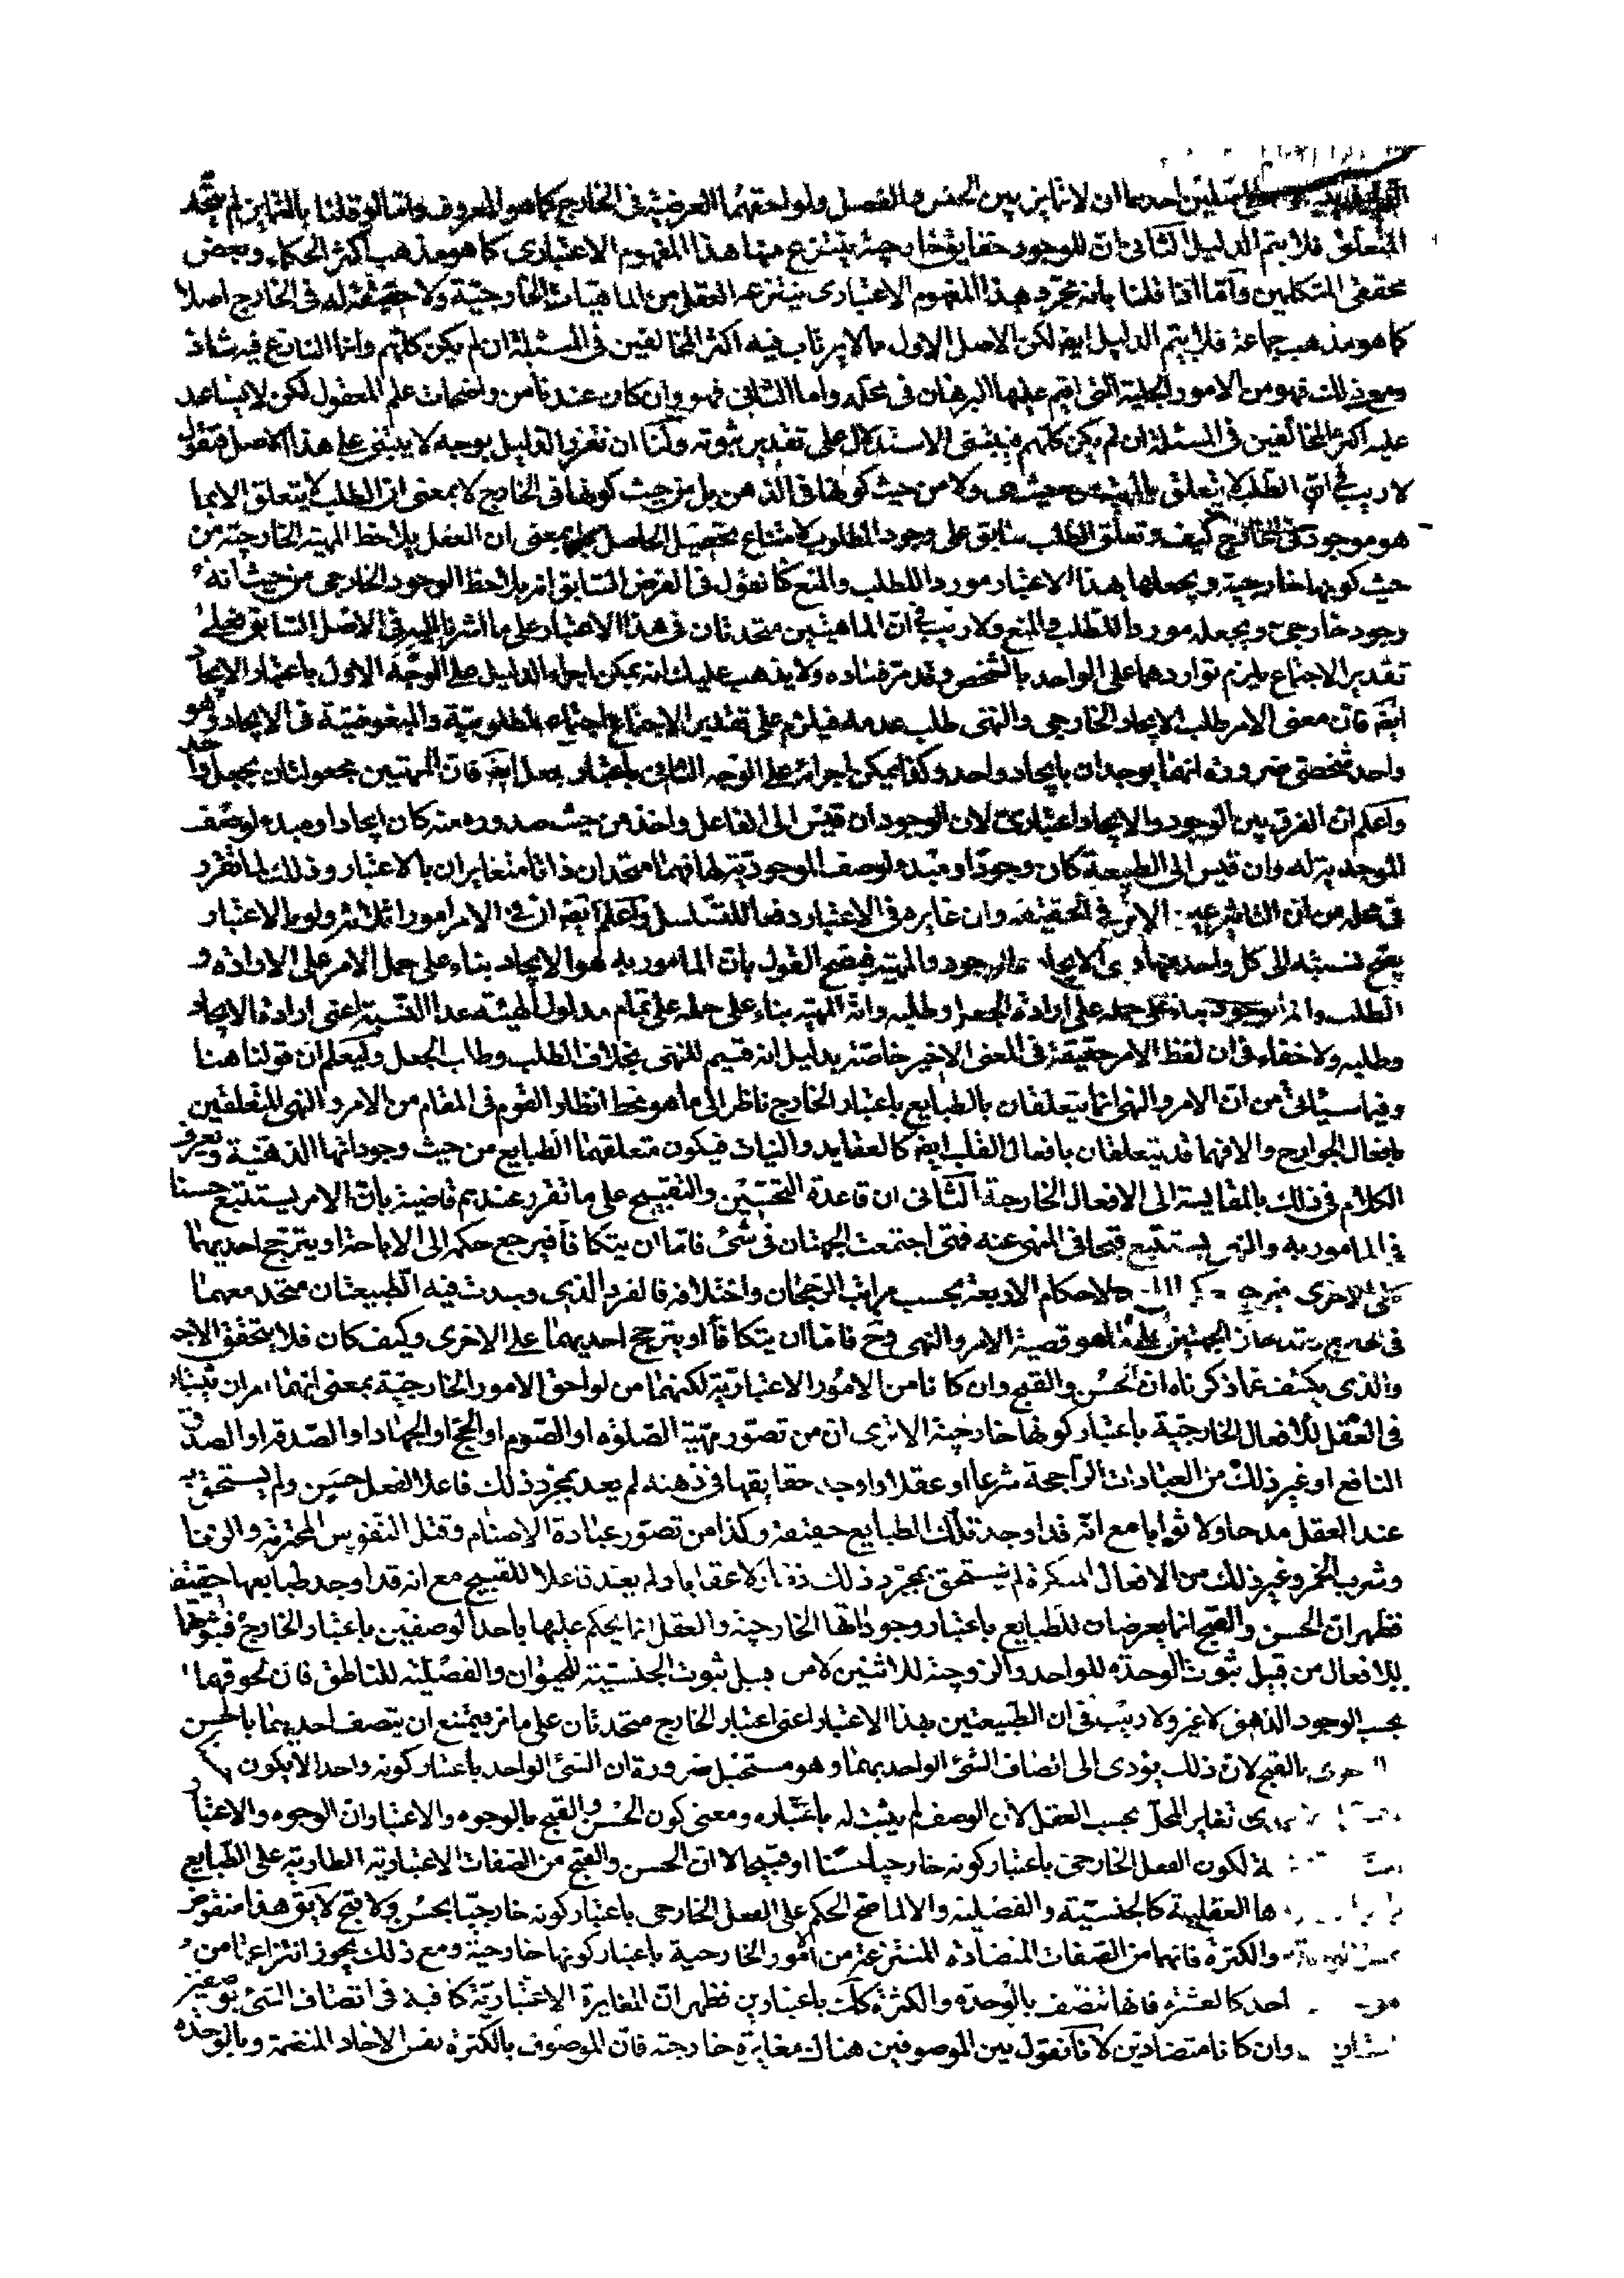 اصلين احدهما ان لا تمايز بين الجنس والفصل ولواحقهما العرضية فى الخارج كما هو المعروف واما لو قلنا بالتمايز لم يتحد
المتعلق فلا يتم الدليل الثانى ان للوجود حقايق خارجية ينتزع منها هذا المفهوم الاعتبارى كما هو مذهب اكثر الحكماء وبعض
محققى المتكلمين واما اذا قلنا بانه مجرد هذا المفهوم الاعتبارى ينتزعه العقل من الماهيات الخارجية ولا حقيقة له فى الخارج اصلا
كما هو مذهب جماعة فلا يتم الدليل ايضا لكن الاصل الاول مما لا يرتاب فيه اكثر المخالفين فى المسئلة ان لم يكن كلهم وانما التنازع فيه شاذ
ومع ذلك فهو من الامور الجلية التى اقيم عليها البرهان فى محله واما الثانى فهو وان كان عندنا من واضحات علم المعقول لكن لا يساعد
عليه اكثر المخالفين فى المسئلة ان لم يكن كلهم فيبتنى الاستدلال على تقدير ثبوته ولنا ان نقرر الدليل بوجه لا يبتنى على هذا الاصل فنقول
لا ريب فى ان الطلب لا يتعلق بالمهية من حيث هى ولا من حيث كونها فى الذهن بل من حيث كونها فى الخارج لا بمعنى ان الطلب لا يتعلق الا بما
هو موجود فى الخارج كيف وتعلق الطلب سابق على وجود المطلوب لامتناع تحصيل الحاصل بل بمعنى ان العقل يلاحظ المهية الخارجية من
حيث كونها خارجية ويجعلها بهذا الاعتبار موردا للطلب والمنع كما نقول فى الفرض السابق انه يلاحظ الوجود الخارجى من حيث انه
وجود خارجى ويجعله موردا للطلب والمنع ولا ريب فى ان الماهيتين متحدتان فى هذا الاعتبار على ما اشرنا اليه فى الاصل السابق فعلى
تقدير الاجتماع يلزم تواردهما على الواحد بالشخص وقد مر فساده ولا يذهب عليك انه يمكن اجراء الدليل على الوجه الاول باعتبار الايجاد
ايضا فان معنى الامر طلب الايجاد الخارجى والنهى طلب عدمه فيلزم على تقدير الاجتماع اجتماع المطلوبية والمبغوضية فى الايجاد وهو
واحد شخصى ضرورة انهما يوجدان بايجاد واحد وكذا يمكن اجرائه على الوجه الثانى باعتبار الجعل ايضا فان المهيتين مجعولتان بجعل واحد
واعلم ان الفرق بين الوجود والايجاد اعتبارى لان الوجود ان قيس الى الفاعل واخذ من حيث صدوره منه كان ايجادا ومبدء لوصف
الموجدية له وان قيس الى الطبيعة كان وجودا ومبدء لوصف الموجودية لها فهما متحدان ذاتا متغايران بالاعتبار وذلك لما تقرر
فى محله من ان التاثير عين الاثر فى الحقيقة وان غايره فى الاعتبار دفعا للتسلسل واعلم ايضا ان فى الامر امورا ثلثة ولو بالاعتبار
يصح نسبته الى كل واحد منها وهى الايجاد والوجود والمهية فيصح القول بان المامور به هو الايجاد بناء على حمل الامر على الارادة و
الطلب وانه الوجود بناء على حمله على ارادة الجعل وطلبه وانه المهية بناء على حمله على تمام مدلول الهيئة عدا النسبة اعنى ارادة الايجاد
وطلبه ولا خفاء فى ان لفظ الامر حقيقة فى المعنى الاخير خاصة بدليل انه قسيم للنهى بخلاف الطلب وطلب الجعل وليعلم ان قولنا هنا
وفيما سياتى من ان الامر والنهى انما يتعلقان بالطبايع باعتبار الخارج ناظر الى ما هو محط انظار القوم فى المقام من الامر والنهى المتعلقين
بافعال الجوارح والا فهما قد يتعلقان بافعال القلب ايضا كالعقايد والنيات فيكون متعلقهما الطبايع من حيث وجوداتها الذهنية ويعرف
الكلام فى ذلك بالمقايسة الى الافعال الخارجة الثانى ان قاعدة التحسين والتقبيح على ما تقرر عندهم قاضية بان الامر يستتبع حسنا
فى المامور به والنهى يستتبع قبحا فى المنهى عنه فمتى اجتمعت الجهتان فى شئ فاما ان يتكافآ فيرجع حكمه الى الاباحة او يترجح احديهما
على الاخرى فيرجع الاحكام الاربعة بحسب مراتب الرجحان واختلافه فالفرد الذى وجدت فيه الطبيعتان متحد معهما
فى الخارج الجهتين على ما هو قضية الامر والنهى وح فاما ان يتكافآ او يترجح احديهما على الاخرى وكيف كان فلا يتحقق
والذى يكشف عما ذكرناه ان الحسن والقبح وان كانا من الامور الاعتبارية لكنهما من لواحق الامور الخارجية بمعنى انهما امران
فى العقل للافعال الخارجية باعتبار كونها خارجية الا ترى ان من تصور مهية الصلوة او الصوم او الحج او الجهاد او الصدقة او الصدق
النافع او غير ذلك من العبادات الراجحة شرعا او عقلا واوجد حقايقها فى ذهنه لم يعد بمجرد ذلك فاعلا لفعل حسن ولم يستحق به
عند العقل مدحا ولا ثوابا مع انه قد اوجد تلك الطبايع حقيقة وكذا من تصور عبادة الاصنام وقتل النفوس المحترمة والزنا
وشرب الخمر وغير ذلك من الافعال المنكرة لم يستحق بمجرد ذلك ذما ولا عقابا ولم يعد فاعلا للقبيح مع انه قد اوجد طبايعها حقيقة
فظهر ان الحسن والقبح انما يعرضان للطبايع باعتبار وجوداتها الخارجية والعقل انما يحكم عليها باحد الوصفين باعتبار الخارج فثبوتهما
للافعال من قبيل ثبوت الوحدة للواحد والزوجية للاثنين لا من قبيل ثبوت الجنسية للحيوان والفصلية للناطق فان لحوقهما
بحسب الوجود الذهنى لا غير ولا ريب فى ان الطبيعتين بهذا الاعتبار اعنى اعتبار الخارج متحدتان على ما مر فيمتنع ان يتصف احديهما بالحسن
بالقبح لان ذلك يؤدى الى اتصاف الشئ الواحد بهما وهو مستحيل ضرورة ان الشئ الواحد باعتبار كونه واحدا لا يكون
تغاير المحل بحسب العقل لان الوصف لم يثبت له باعتباره ومعنى كون الحسن والقبح بالوجوه والاعتبار ان الوجوه والاعتبار
لكون الفعل الخارجى باعتبار كونه خارجيا حسنا او قبيحا لا ان الحسن والقبح من الصفات الاعتبارية الطارية على الطبايع
العقلية كالجنسية والفصلية والا لما صح الحكم على الفعل الخارجى باعتبار كونه خارجيا بحسن ولا قبح لا يق هذا منقوض
والكثرة فانهما من الصفات المتضادة المنتزعة من الامور الخارجية باعتبار كونها خارجية ومع ذلك يجوز انتزاعهما من
كالعشرة فانها تتصف بالوحدة والكثرة لكن باعتبارين فظهر ان المغايرة الاعتبارية كافية فى اتصاف الشئ
وان كانا متضادين لانا نقول بين الموصوفين هناك مغايرة خارجية فان الموصوف بالكثرة نفس الاحاد المنضمة وبالوحدة